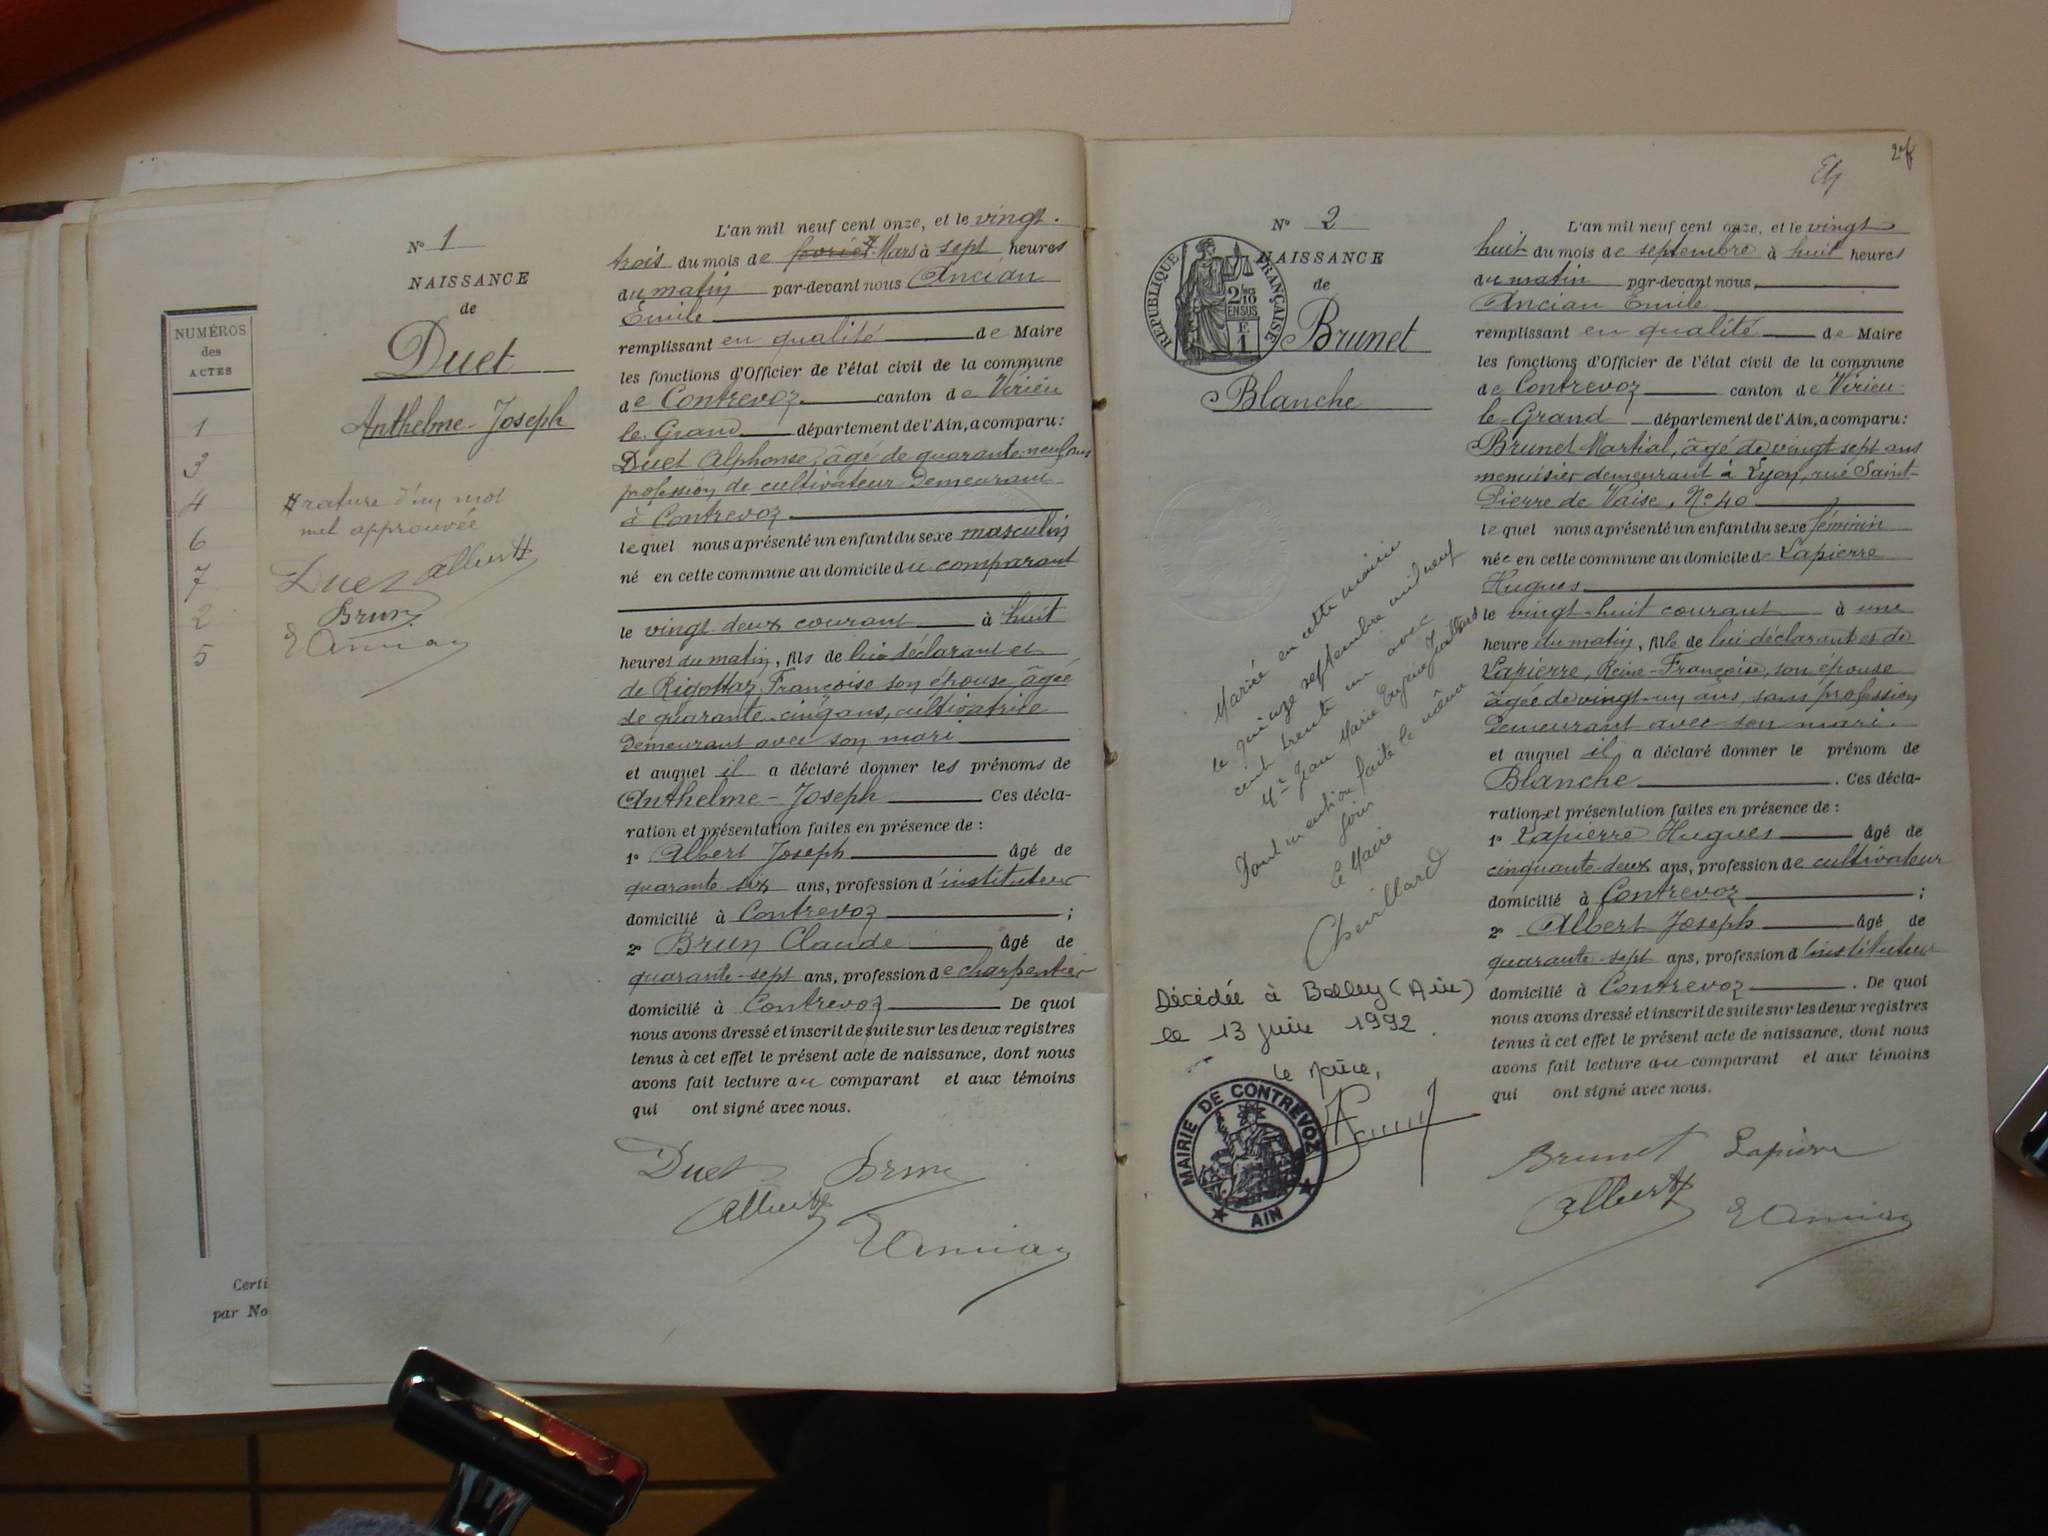 NUMÉROS
des
ACTES
1
3
4
6
7
2
5
Certi
par No
N° 1
NAISSANCE
de
Duet
Anthelme-Joseph
rature d'un mot
nul approuvée
Duet Albert
Brun
E Ancian
L'an mil neuf cent onze, et le vingt-
trois du mois de février Mars à sept heures
du matin par-devant nous Ancian
Emile
remplissant en qualité de Maire
les fonctions d'Officier de l'état civil de la commune
de Contrevoz canton de Virieu
le-Grand département de l'Ain, a comparu:
Duet Alphonse, âgé de quarante-neuf ans
profession de cultivateur demeurant
à Contrevoz
lequel nous a présenté un enfant du sexe masculin
né en cette commune au domicile du comparant
le vingt deux courant à huit
heures du matin, fils de lui déclarant et
de Rigottaz Françoise son épouse âgée
de quarante-cinq ans, cultivatrice
demeurant avec son mari
et auquel il a déclaré donner les prénoms de
Anthelme-Joseph Ces décla-
ration et présentation faites en présence de :
1° Albert Joseph âgé de
quarante six ans, profession d'instituteur
domicilié à Contrevoz ;
2° Brun Claude âgé de
quarante-sept ans, profession de charpentier
domicilié à Contrevoz De quoi
nous avons dressé et inscrit de suite sur les deux registres
tenus à cet effet le présent acte de naissance, dont nous
avons fait lecture au comparant et aux témoins
qui ont signé avec nous.
Duet Brun
Albert
E Ancian
N° 2
NAISSANCE
de
Brunet
Blanche
RÉPUBLIQUE FRANÇAISE
2/10
EN SUS
F.
1
Mariée en cette mairie
le quinze septembre mil neuf
cent trente un avec
Mr Jean Marie Eugène
Dont mention faite le même
jour
Le Maire
Chevillard
Décédée à Belley (Ain)
le 13 juin 1992.
Le Maire,
MAIRIE DE CONTREVOZ
AIN
L'an mil neuf cent onze, et le vingt
huit du mois de septembre à huit heures
du matin par-devant nous,
Ancian Emile
remplissant en qualité de Maire
les fonctions d'Officier de l'état civil de la commune
de Contrevoz canton de Virieu-
le-Grand département de l'Ain, a comparu:
Brunet Martial, âgé de vingt sept ans
menuisier demeurant à Lyon, rue Saint-
Pierre de Vaise, N° 40
lequel nous a présenté un enfant du sexe féminin
née en cette commune au domicile de Lapierre
Hugues
le vingt-huit courant à une
heure du matin, fille de lui déclarant et de
Lapierre, Reine-Françoise, son épouse
âgée de vingt-un ans, sans profession
demeurant avec son mari.
et auquel il a déclaré donner le prénom de
Blanche. Ces décla-
ration et présentation faites en présence de :
1° Lapierre Hugues âgé de
cinquante-deux ans, profession de cultivateur
domicilié à Contrevoz ;
2° Albert Joseph âgé de
quarante-sept ans, profession d'instituteur
domicilié à Contrevoz. De quoi
nous avons dressé et inscrit de suite sur les deux registres
tenus à cet effet le présent acte de naissance, dont nous
avons fait lecture au comparant et aux témoins
qui ont signé avec nous.
Brunet Lapierre
Albert E Ancian